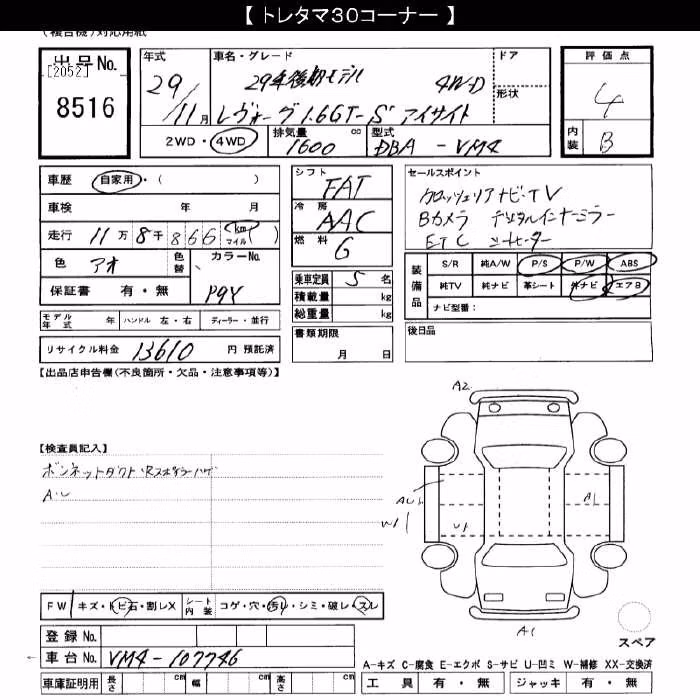 【 トレタマ30コーナー 】
(複合機)対応用紙
出品No.
[2052]
8516
年式 29/11月
車名・グレード
29年後期モデル 4WD
レヴォーグ1.6GT-S アイサイト
ドア
形状
評価点
4
内装 B
2WD・4WD
排気量 1600 cc
型式 DBA - VM4
車歴 自家用・( )
車検 年 月
走行 11万8千866 (km マイル)
色 アオ
色替
カラーNo. P9Y
保証書 有・無
シフト FAT
冷房 AAC
燃料 G
乗車定員 5 名
積載量 kg
総重量 kg
セールスポイント
クロッツェリアナビ・TV
Bカメラ デジタルインナーミラー
ETC シートヒーター
装備品
S/R 純A/W P/S P/W ABS
純TV 純ナビ 革シート 外ナビ エアB
ナビ型番:
モデル年式 年 ハンドル 左・右 ディーラー・並行
リサイクル料金 13610 円 預託済
書類期限
月 日
後日品
【出品店申告欄(不良箇所・欠品・注意事項等)】
【検査員記入】
ボンネットダクト
A2
A1
U1
W1
A1
FW キズ・トビ石・割レX
シート内装 コゲ・穴・汚レ・シミ・破レ・スレ
登録No.
車台No. VM4-107746
車庫証明用 長さ cm 幅 cm 高さ cm
スペア
A-キズ C-腐食 E-エクボ S-サビ U-凹ミ W-補修 XX-交換済
工具 有・無 ジャッキ 有・無